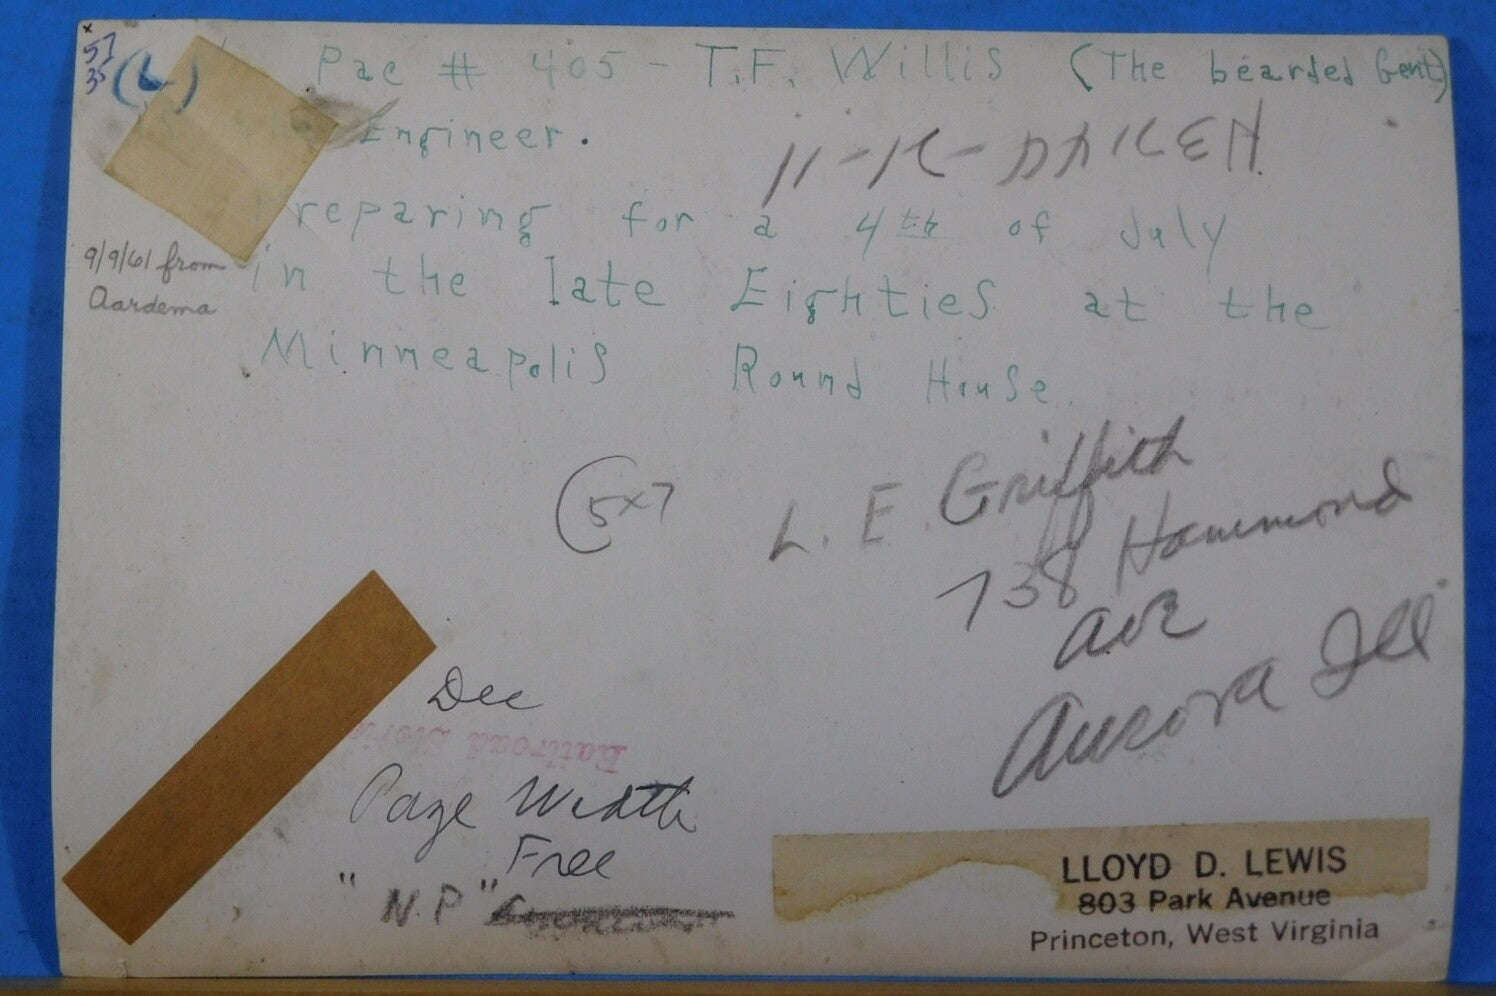 57
35
(L)
Pac # 405 - T.F. Willis (The bearded Gent)
Engineer.
11-12-DARKEN
reparing for a 4th of July
in the late Eighties at the
Minneapolis Round House.
9/9/61 from
Aardema
(5x7
L. E. Griffith
738 Hammond
ave
Aurora Ill
Dec
Railroad Stories
Page Width
Free
"N.P"
LLOYD D. LEWIS
803 Park Avenue
Princeton, West Virginia